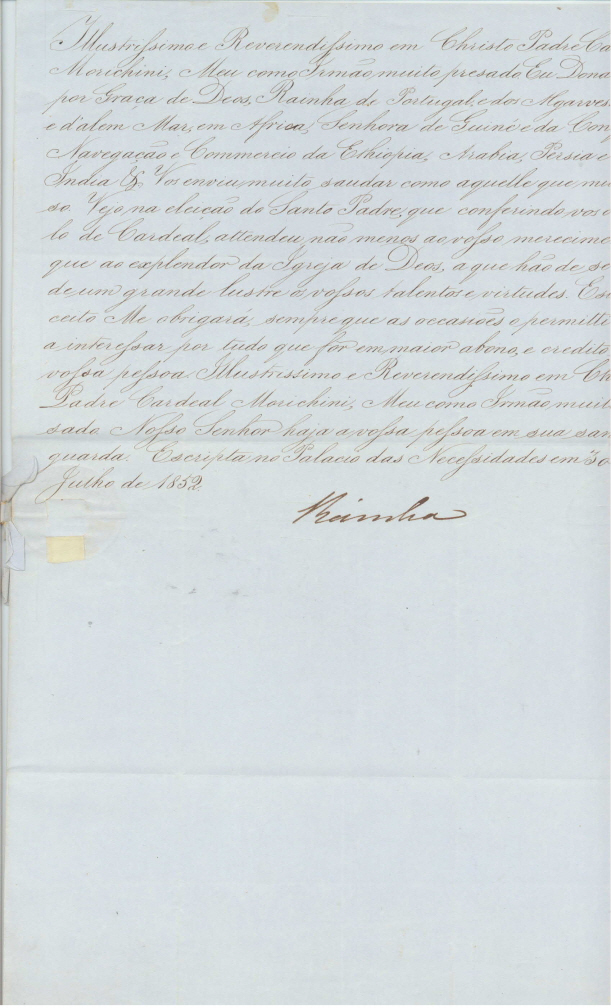 Illustrissimo e Reverendissimo em Christo Padre Ca
Morichini, Meu como Irmão, muito presado Eu Dona
por Graça de Deos, Rainha de Portugal, e dos Algarves
e d'alem Mar, em Africa, Senhora de Guiné e da Conq
Navegação e Commercio da Ethiopia, Arabia, Persia e
India &. Vos enviu muito saudar como aquelle que mu
so. Vejo na eleição do Santo Padre, que conferindo vos o
lo de Cardeal, attendeu não menos ao vosso merecime
que ao explendor da Igreja de Deos, a que hão de se
de um grande lustre os vossos talentos e virtudes. Est
ceito Me obrigará, sempre que as occasiões o permitte
a interessar por tudo que fôr em maior abono, e credito
vossa pessoa. Illustrissimo e Reverendissimo em Ch
Padre Cardeal Morichini, Meu como Irmão muit
sado. Nosso Senhor haja a vossa pessoa em sua san
guarda. Escripta no Palacio das Necessidades em 30
Julho de 1852.
Rainha